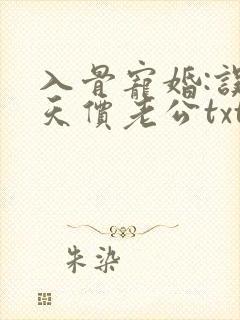 入骨寵婚:誤
天價老公txt
朱染